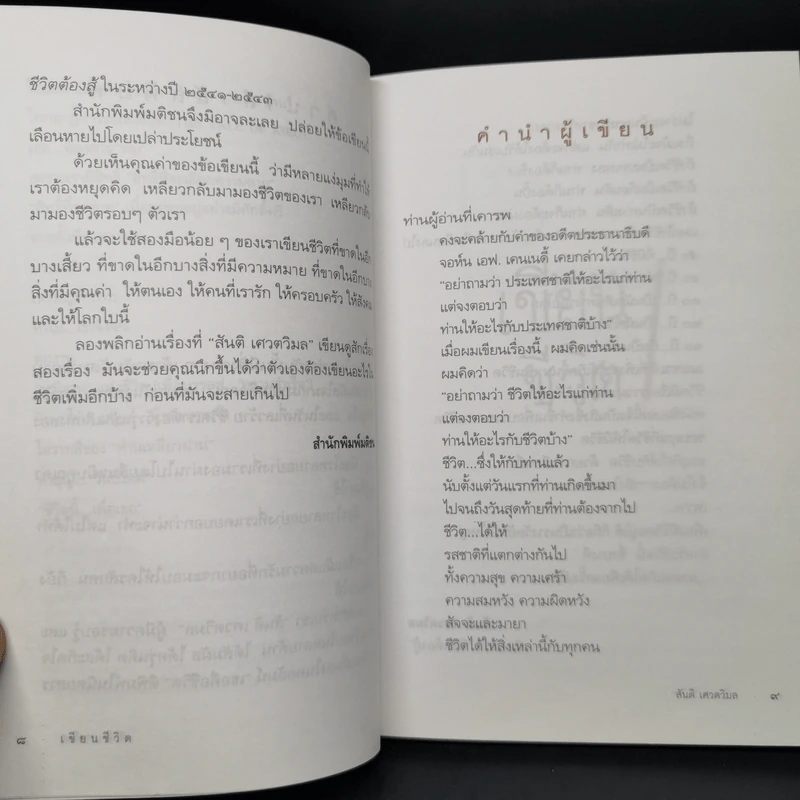 ชีวิตต้องสู้ ในระหว่างปี ๒๕๔๑-๒๕๔๓
สำนักพิมพ์มติชนจึงมิอาจละเลย ปล่อยให้ข้อเขียนนี้
เลือนหายไปโดยเปล่าประโยชน์
ด้วยเห็นคุณค่าของข้อเขียนนี้ ว่ามีหลายแง่มุมที่ทำให้
เราต้องหยุดคิด เหลียวกลับมามองชีวิตของเรา เหลียวกลับ
มามองชีวิตรอบๆ ตัวเรา
แล้วจะใช้สองมือน้อย ๆ ของเราเขียนชีวิตที่ขาดในอีก
บางเสี้ยว ที่ขาดในอีกบางสิ่งที่มีความหมาย ที่ขาดในอีกบาง
สิ่งที่มีคุณค่า ให้ตนเอง ให้คนที่เรารัก ให้ครอบครัว ให้สังคม
และให้โลกใบนี้
ลองพลิกอ่านเรื่องที่ "สันติ เศวตวิมล" เขียนดูสักเรื่อง
สองเรื่อง มันจะช่วยคุณนึกขึ้นได้ว่าตัวเองต้องเขียนอะไรใน
ชีวิตเพิ่มอีกบ้าง ก่อนที่มันจะสายเกินไป
สำนักพิมพ์มติชน
๘ เขียนชีวิต
คำนำผู้เขียน
ท่านผู้อ่านที่เคารพ
คงจะคล้ายกับคำของอดีตประธานาธิบดี
จอห์น เอฟ. เคนเนดี้ เคยกล่าวไว้ว่า
"อย่าถามว่า ประเทศชาติให้อะไรแก่ท่าน
แต่จงตอบว่า
ท่านให้อะไรกับประเทศชาติบ้าง"
เมื่อผมเขียนเรื่องนี้ ผมคิดเช่นนั้น
ผมคิดว่า
"อย่าถามว่า ชีวิตให้อะไรแก่ท่าน
แต่จงตอบว่า
ท่านให้อะไรกับชีวิตบ้าง"
ชีวิต...ซึ่งให้กับท่านแล้ว
นับตั้งแต่วันแรกที่ท่านเกิดขึ้นมา
ไปจนถึงวันสุดท้ายที่ท่านต้องจากไป
ชีวิต...ได้ให้
รสชาติที่แตกต่างกันไป
ทั้งความสุข ความเศร้า
ความสมหวัง ความผิดหวัง
สัจจะและมายา
ชีวิตได้ให้สิ่งเหล่านี้กับทุกคน
สันติ เศวตวิมล ๙